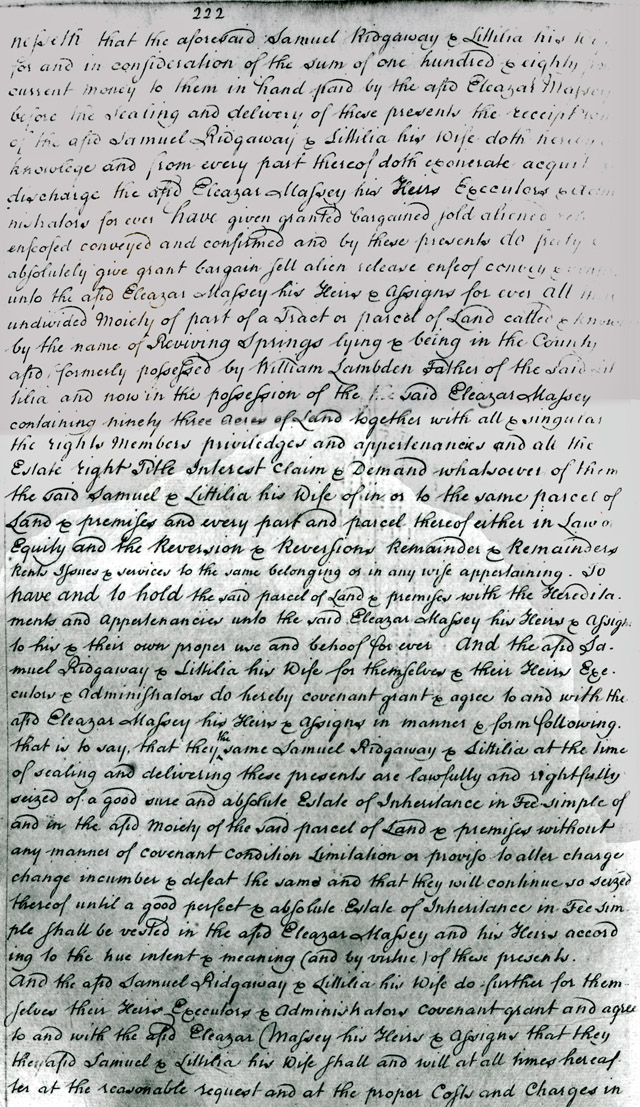 222
nesseth that the aforesaid Samuel Ridgaway & Littilia his
for and in consideration of the sum of one hundred & eighty
current money to them in hand paid by the afsd Eleazar Massey
before the sealing and delivery of these presents the receipt
of the afsd Samuel Ridgaway & Littilia his Wife doth
knowlege and from every part thereof doth exonerate acquit
discharge the afsd Eleazar Massey his Heirs Executors &
nistrators for ever have given granted bargained sold aliened
enfeofed conveyed and confirmed and by these presents do freely
absolutely give grant bargain sell alien release enfeof convey &
unto the afsd Eleazar Massey his Heirs & Assigns for ever all
undivided Moiety of part of a Tract or parcel of Land called &
by the name of Reviving Springs lying & being in the County
afsd formerly possessed by William Lambden Father of the said
tilia and now in the possession of the said Eleazar Massey
containing ninety three acres of Land together with all & singular
the rights Members priviledges and appertenancies and all the
Estate right Title Interest Claim & Demand whatsoever of them
the said Samuel & Littilia his Wife of in or to the same parcel of
Land & premises and every part and parcel thereof either in Law o
Equity and the Reversion & Reversions Remainder & Remainders
Rents Issues & services to the same belonging or in any wise appertaining. To
have and to hold the said parcel of Land & premises with the Heredita-
ments and Appertenancies unto the said Eleazar Massey his Heirs & Assigns
to his & their own proper use and behoof for ever And the afsd Sa-
muel Ridgaway & Littilia his Wife for themselves & their Heirs Exe-
cutors & Administrators do hereby covenant grant & agree to and with the
afsd Eleazar Massey his Heirs & Assigns in manner & form following.
that is to say, that they the same Samuel Ridgaway & Littilia at the time
of sealing and delivering these presents are lawfully and rightfully
seized of a good sure and absolute Estate of Inheritance in Fee simple of
and in the afsd Moiety of the said parcel of Land & premises without
any manner of covenant Condition Limitation or proviso to alter charge
change incumber & defeat the same and that they will continue so seized
thereof until a good perfect & absolute Estate of Inheritance in Fee sim-
ple shall be vested in the afsd Eleazar Massey and his Heirs accord
ing to the true intent & meaning (and by virtue) of these presents.
And the afsd Samuel Ridgaway & Littilia his Wife do further for them-
selves their Heirs Executors & Administrators covenant grant and agree
to and with the afsd Eleazar Massey his Heirs & Assigns that they
they afsd Samuel & Littilia his Wife shall and will at all times hereaf
ter at the reasonable request and at the proper Costs and Charges in